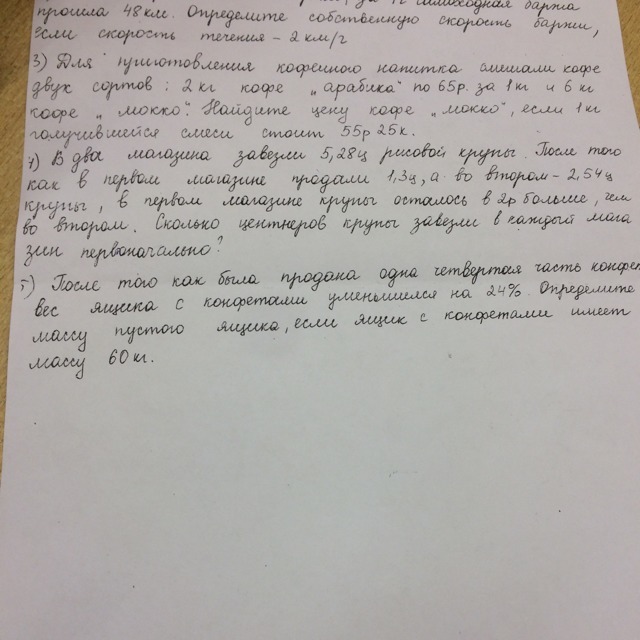 прошла 48 км. Определите собственную скорость баржи,
если скорость течения - 2 км/г
3) Для приготовления кофейного напитка смешали кофе
двух сортов: 2 кг кофе „арабика" по 65р. за 1 кг и 6 кг
кофе „мокко". Найдите цену кофе „мокко", если 1 кг
получившейся смеси стоит 55р 25к.
4) В два магазина завезли 5,28ц рисовой крупы. После того
как в первом магазине продали 1,3ц, а во втором - 2,54ц
крупы, в первом магазине крупы осталось в 2р больше, чем
во втором. Сколько центнеров крупы завезли в каждый мага
зин первоначально?
5) После того как была продана одна четвертая часть конфет
вес ящика с конфетами уменьшился на 24%. Определите
массу пустого ящика, если ящик с конфетами имеет
массу 60 кг.